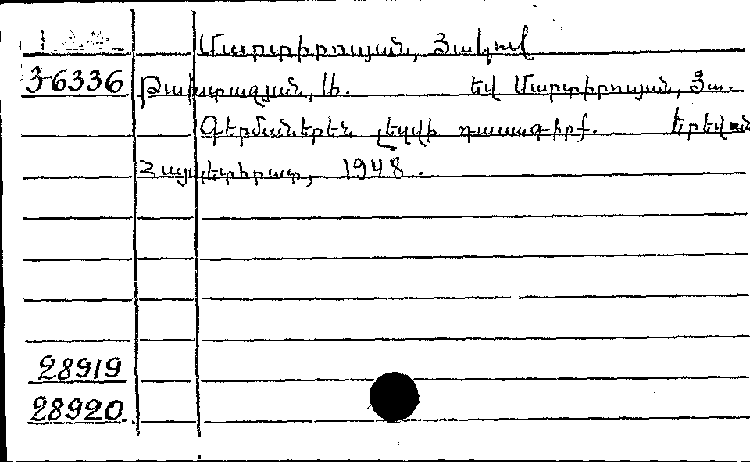 Մարտիրոսյան, Յակով
36336 Թախտազյան, Ս. եվ Մարտիրոսյան, Յա.
Գերմաներեն լեզվի դասագիրք. Երեվան
Հայպետհրատ, 1948.
28919
28920